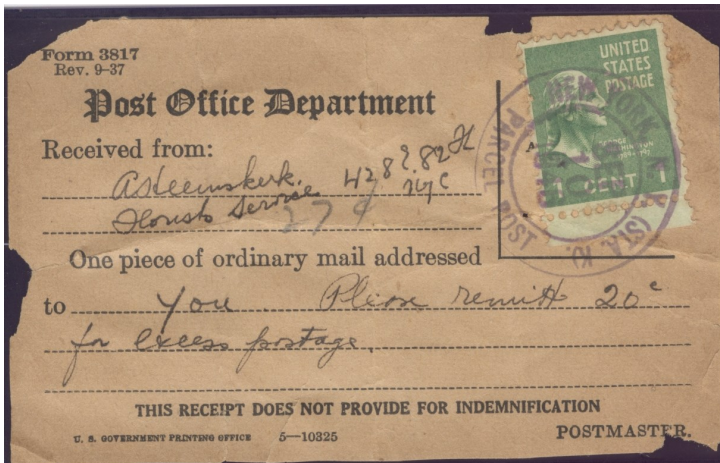 Form 3817
Rev. 9-37
Post Office Department
Received from:
A Heemskerk. 428 E. 82 St
Florists Service NYC
27¢
One piece of ordinary mail addressed
to You. Please remit 20c
for excess postage.
THIS RECEIPT DOES NOT PROVIDE FOR INDEMNIFICATION
U. S. GOVERNMENT PRINTING OFFICE 5—10325
POSTMASTER.
UNITED
STATES
POSTAGE
1 CENT 1
NEW YORK, N.Y. (STA. K)
PARCEL POST